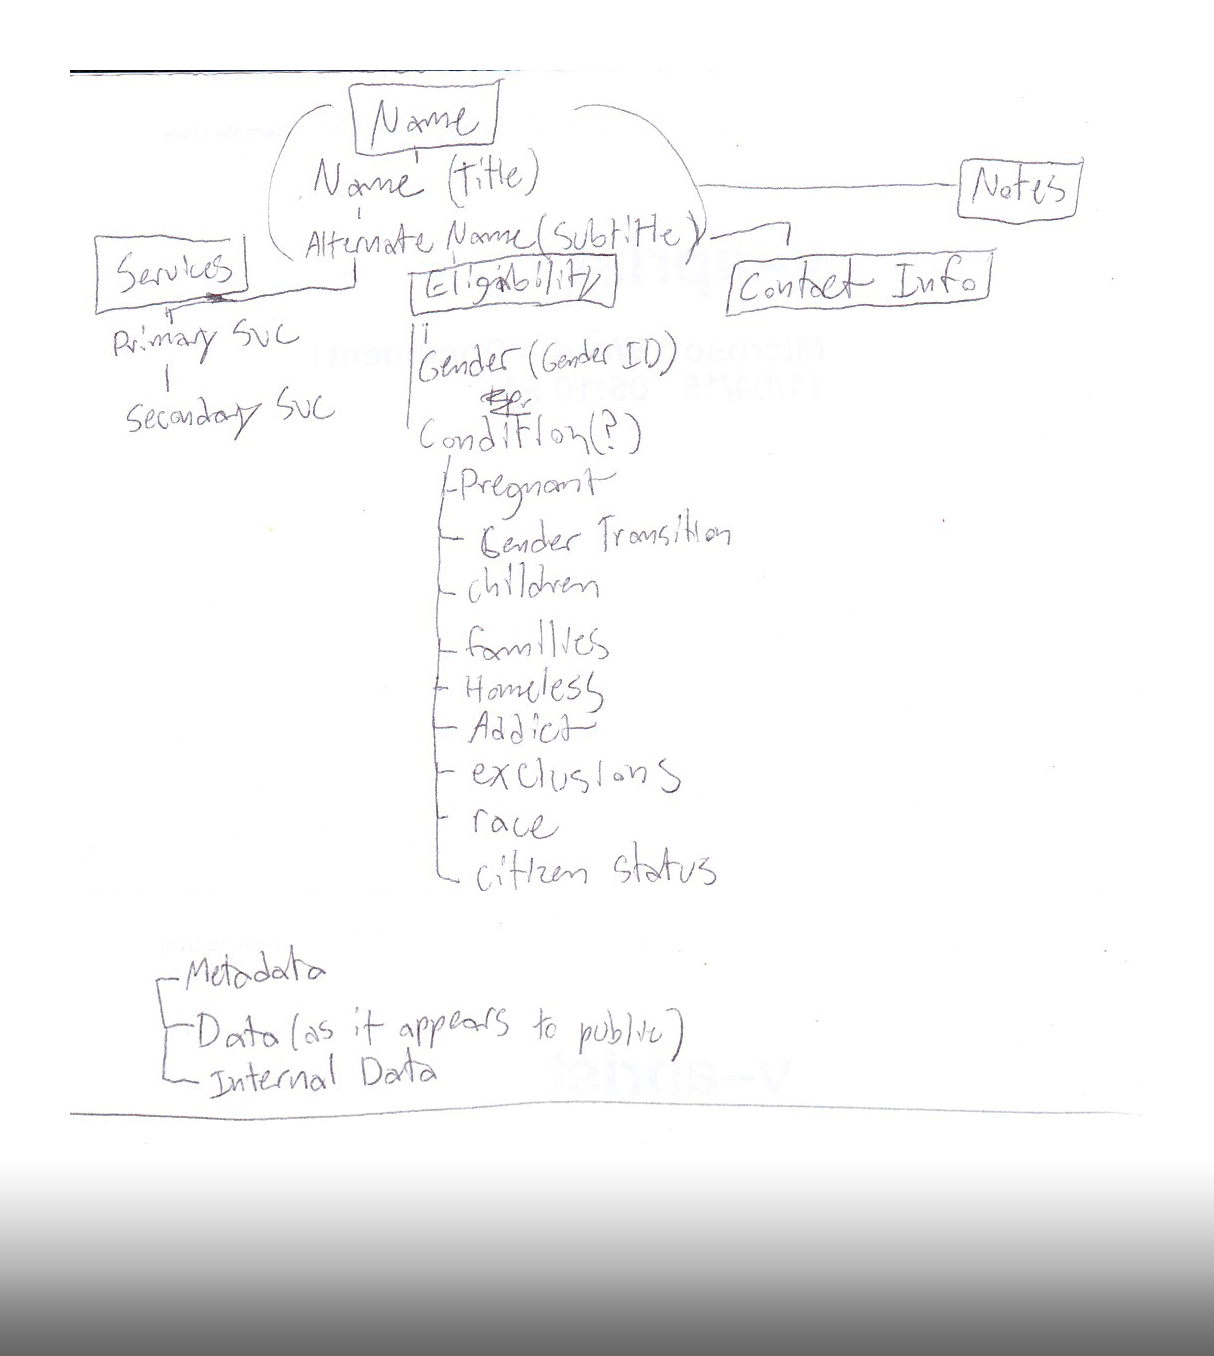 Name
Name (Title)
Notes
Alternate Name (Subtitle)
Services
Eligibility
Contact Info
Primary SVC
Gender (Gender ID)
Secondary SVC
Condition(?)
Pregnant
Gender Transition
children
families
Homeless
Addict
exclusions
race
citizen status
Metadata
Data (as it appears to public)
Internal Data